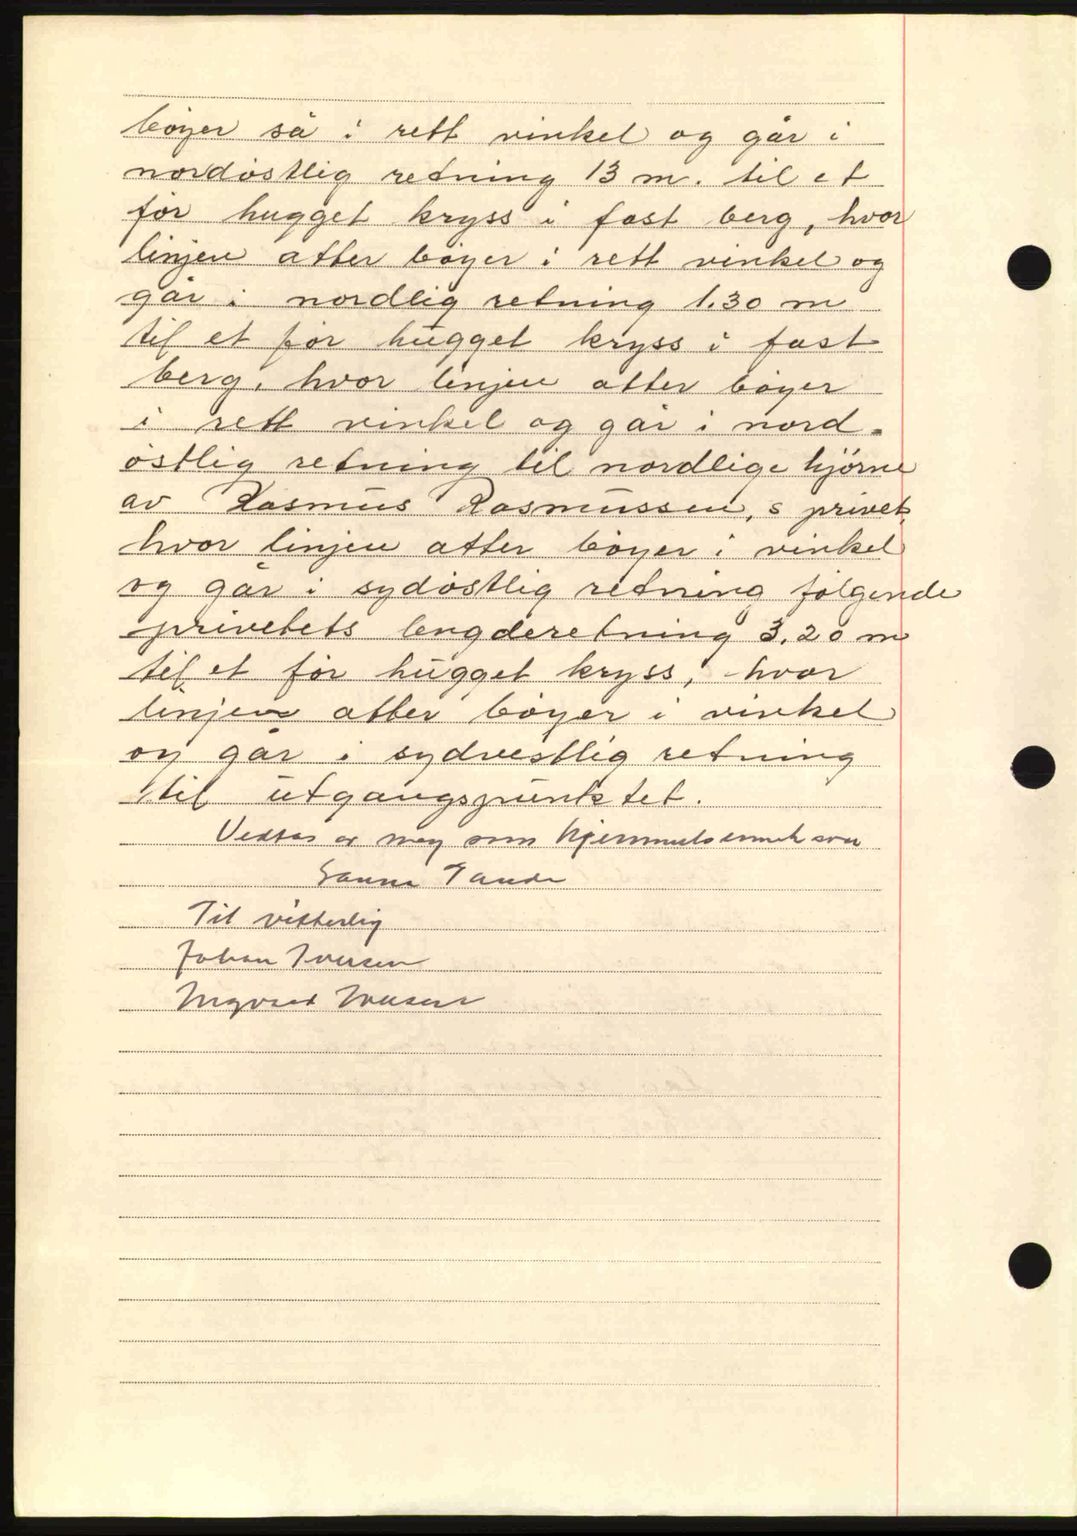 bøyer så i rett vinkel og går i
nordøstlig retning 13 m. til et
for hugget kryss i fast berg, hvor
linjen atter bøyer i rett vinkel og
går i nordlig retning 1.30 m
til et for hugget kryss i fast
berg, hvor linjen atter bøyer
i rett vinkel og går i nord-
østlig retning til nordlige hjørne
av Rasmus Rasmussen,s privet,
hvor linjen atter bøyer i vinkel
og går i sydøstlig retning følgende
privetets lengderetning 3,20 m
til et for hugget kryss, hvor
linjen atter bøyer i vinkel
og går i sydvestlig retning
til utgangspunktet.
Vedtas av meg som hjemmelsinnehaver
Tande
Til vitterlig
Johan Iversen
Ingvald Iversen